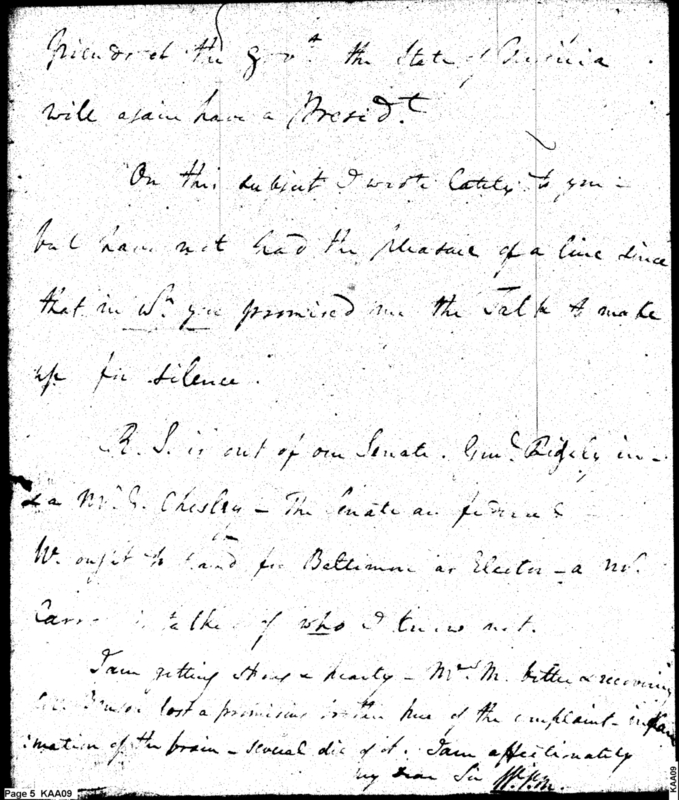 friends of the Gov.t the State of Virginia
will again have a Presid.t
On this subject I wrote lately to you -
but have not had the pleasure of a line since
that in W.h you promised me the Talk to make
up for silence.
R. S. is out of our Senate. Genl. Ridgely in -
& a Mr. Chesley - The Senate are
W. ought to stand for Baltimore as Elector - a Mr.
talked of who I know not.
I am getting strong & hearty - Mrs. M. better & recovering
lost a promising here of the complaint - inflam
mation of the brain - several die of it. I am affectionately
my Dear Sir
Page 5 KAA09
KAA09